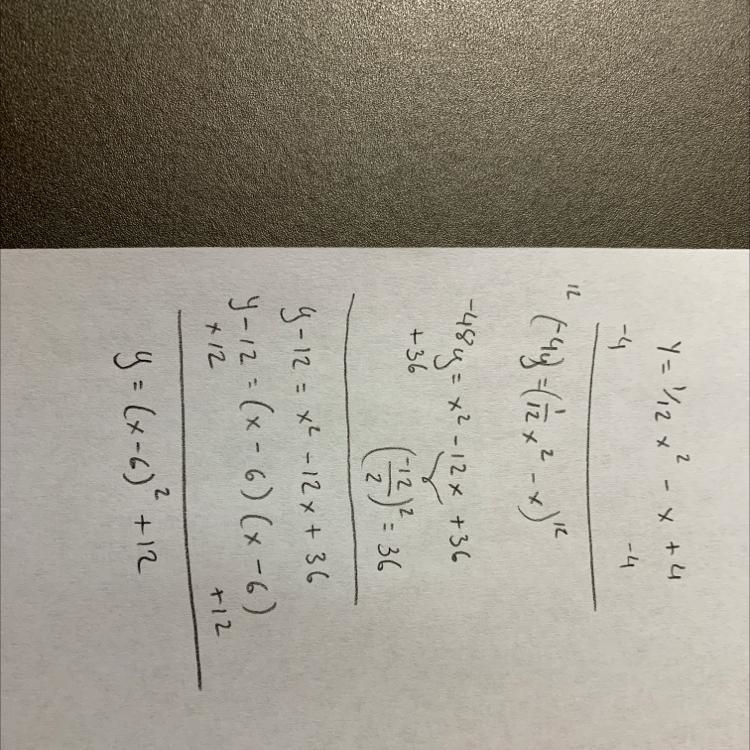 y = 1/12 x² - x + 4
-4 -4
12 (-4y) = (1/12 x² - x) 12
-48y = x² - 12x + 36
+36
(-12/2)² = 36
y - 12 = x² - 12x + 36
y - 12 = (x - 6)(x - 6)
+12 +12
y = (x - 6)² + 12